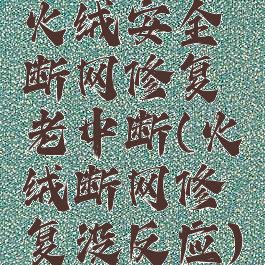 火绒安全
断网修复
老中断(火
绒断网修
复没反应)